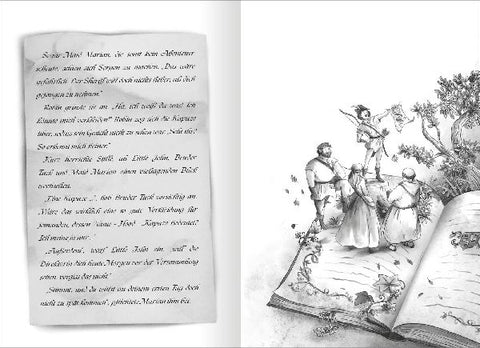 Sogar Maid Marian, die sonst kein Abenteuer
scheute, schien sich Sorgen zu machen. „Das wäre
gefährlich. Der Sheriff will doch nichts lieber, als dich
gefangen zu nehmen."
Robin grinste sie an. „Ha, ich weiß
könnte mich verkleiden!" Robin zog sich die Kapuze
über, sodass sein Gesicht nicht zu sehen war. „Seht ihr?
So erkennt mich keiner."
Kurz herrschte Stille, als Little John, Bruder
Tuck und Maid Marian einen vielsagenden Blick
wechselten.
„Eine Kapuze ...", hob Bruder Tuck vorsichtig an.
„Wäre das wirklich eine so gute Verkleidung für
jemanden, dessen Name – Hood – Kapuze bedeutet?
Ich meine ja nur."
„Außerdem", warf Little John ein, „will die
Direktorin dich heute Morgen vor der Versammlung
sehen, vergiss das nicht."
„Stimmt, und du willst an deinem ersten Tag doch
nicht zu spät kommen", pflichtete Marian ihm bei.